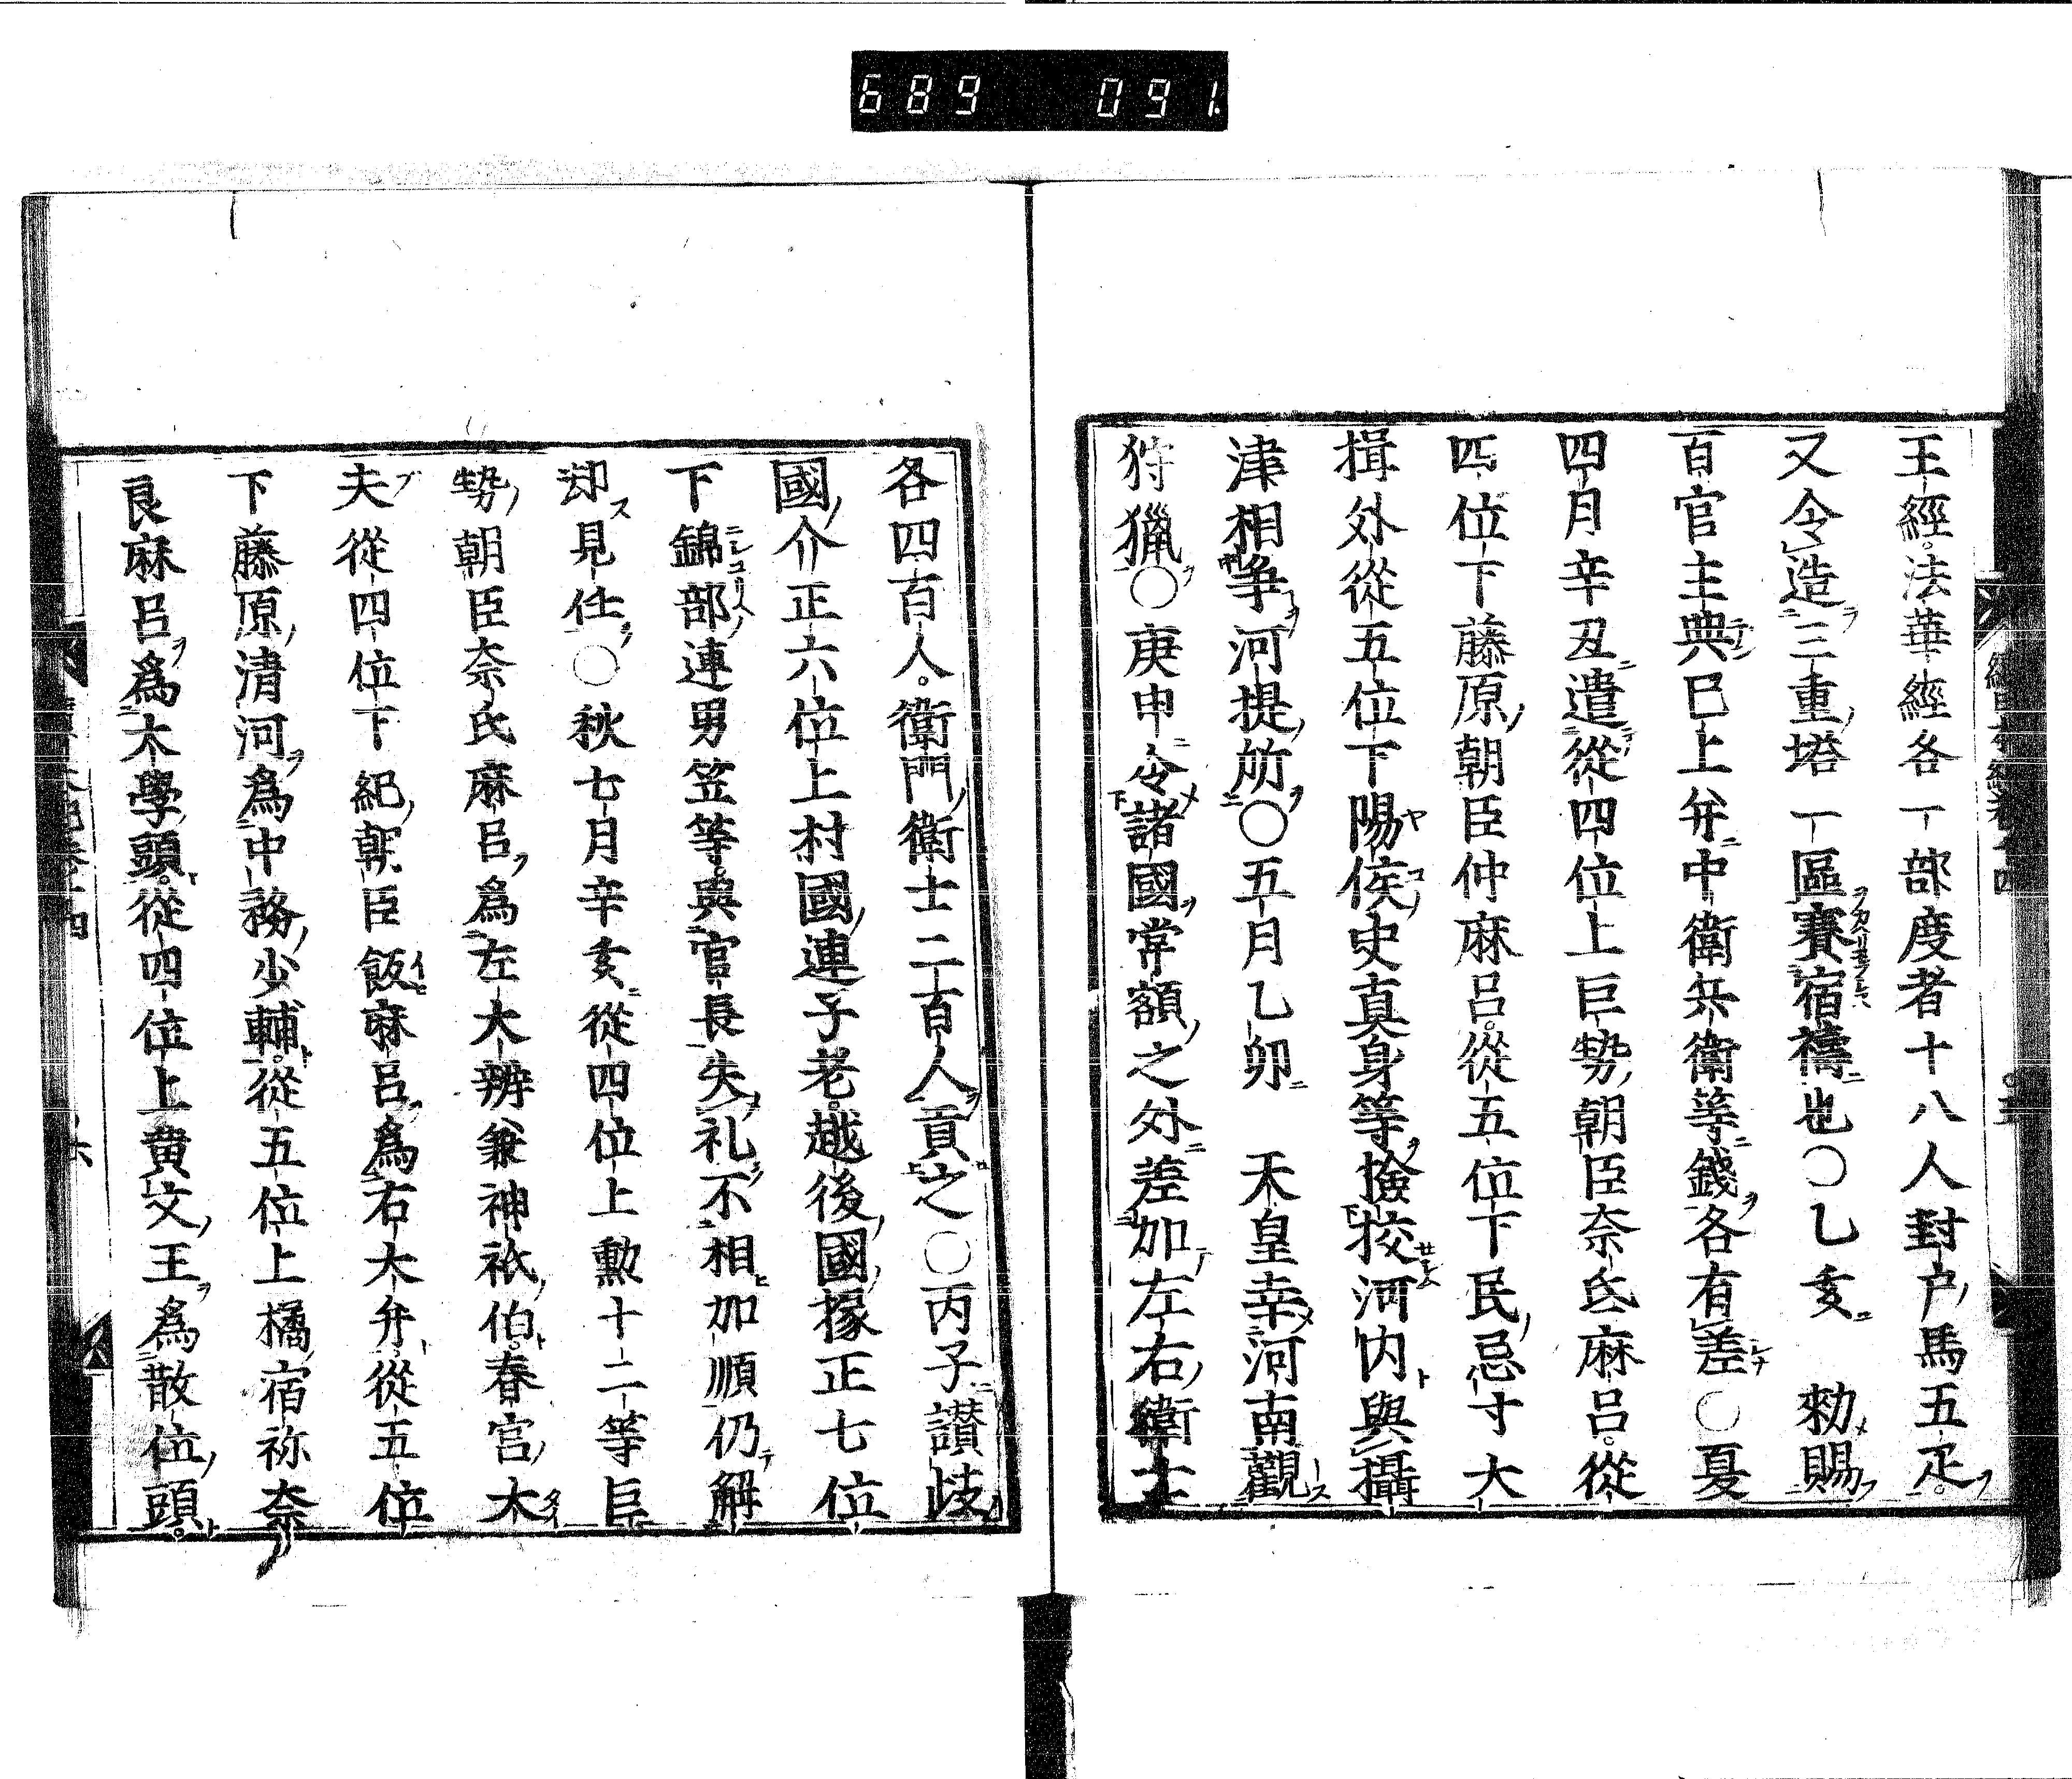 689 091.
王經。法華經各一部度者十八人封戸馬五疋。
又令造三重塔一區賽宿禱也〇乙亥 勅賜
百官主典已上并中衛兵衛等錢各有差〇夏
四月辛丑遣從四位上巨勢朝臣奈氐麻呂。從
四位下藤原朝臣仲麻呂。從五位下民忌寸大
揖外從五位下陽侯史真身等撿挍河内與攝
津相爭河提所〇五月乙卯 天皇幸河南觀
狩獵〇庚申令諸國常額之外差加左右衛士
各四百人。衛門衛士二百人貢之〇丙子讃岐
國介正六位上村國連子老。越後國掾正七位
下錦部連男笠等。與官長失礼不相加順仍解
却見任〇秋七月辛亥從四位上勲十二等巨
勢朝臣奈氐麻呂爲左大辨兼神祇伯。春宮大
夫從四位下紀朝臣飯麻呂爲右大弁從五位
下藤原清河爲中務少輔。從五位上橘宿祢奈
良麻呂爲大學頭。從四位上黄文王爲散位頭。